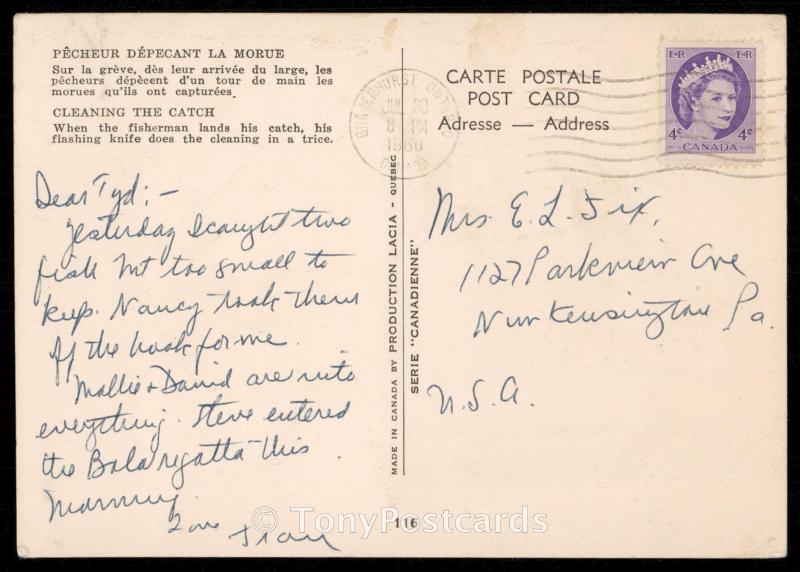 PÊCHEUR DÉPECANT LA MORUE
Sur la grève, dès leur arrivée du large, les
pêcheurs dépècent d'un tour de main les
morues qu'ils ont capturées.
CLEANING THE CATCH
When the fisherman lands his catch, his
flashing knife does the cleaning in a trice.
Dear Tyd:-
Yesterday I caught two
fish but too small to
keep. Nancy took them
off the hook for me.
Mollie & David are into
everything. Steve entered
the Bala regatta this
morning
Love
MADE IN CANADA BY PRODUCTION LACIA - QUEBEC
SERIE "CANADIENNE"
116
CARTE POSTALE
POST CARD
Adresse — Address
GRAVENHURST ONTARIO
JUL 30
8 PM
1960
CANADA
E II R E II R
4¢ 4¢
CANADA
Mrs. E. L. Fix,
1127 Parkview Ave
New Kensington Pa.
U.S.A.
© TonyPostcards